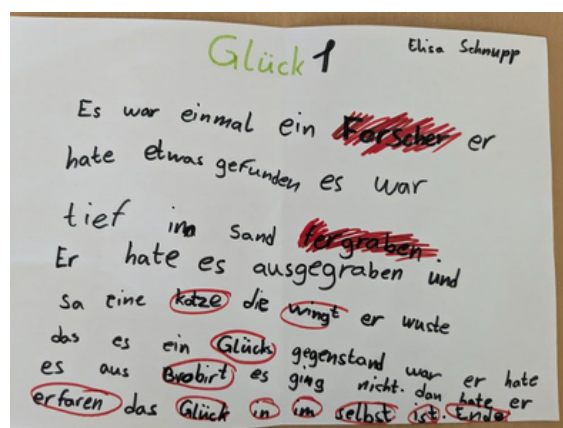 Glück 1
Elisa Schnupp
Es war einmal ein Forscher er
hate etwas gefunden es war
tief im Sand fergraben.
Er hate es ausgegraben und
sa eine katze die wingt er wuste
das es ein Glücks gegenstand war er hate
es aus Brobirt es ging nicht. dan hate er
erfaren das Glück in im selbst ist. Ende